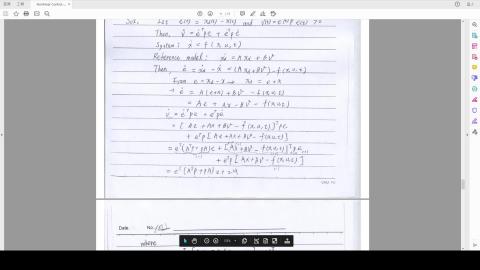 Sol. Let e(t) = xd(t) - x(t) and
Then, V̇ = ėᵀpe + eᵀpė
System: ẋ = f(x,u,t)
Reference model: ẋd = Axd + BV
Then, ė = ẋd - ẋ = (Axd+BV) - f(x,u,t)
From e = xd-x → xd = e+x
→ ė = A(e+x) + BV - f(x,u,t)
= Ae + Ax - BV - f(x,u,t)
V̇ = ėᵀpe + eᵀpė
= [Ae + Ax + BV - f(x,u,t)]ᵀpe
+ eᵀp[Ae+Ax+BV-f(x,u,t)]
= eᵀ(Aᵀp+pA)e + [Ax+BV - f(x,u,t)]ᵀpe
+ eᵀp[Ax+BV-f(x,u,t)]
= eᵀ(Aᵀp+pA)e + 2M
Date. No.
where